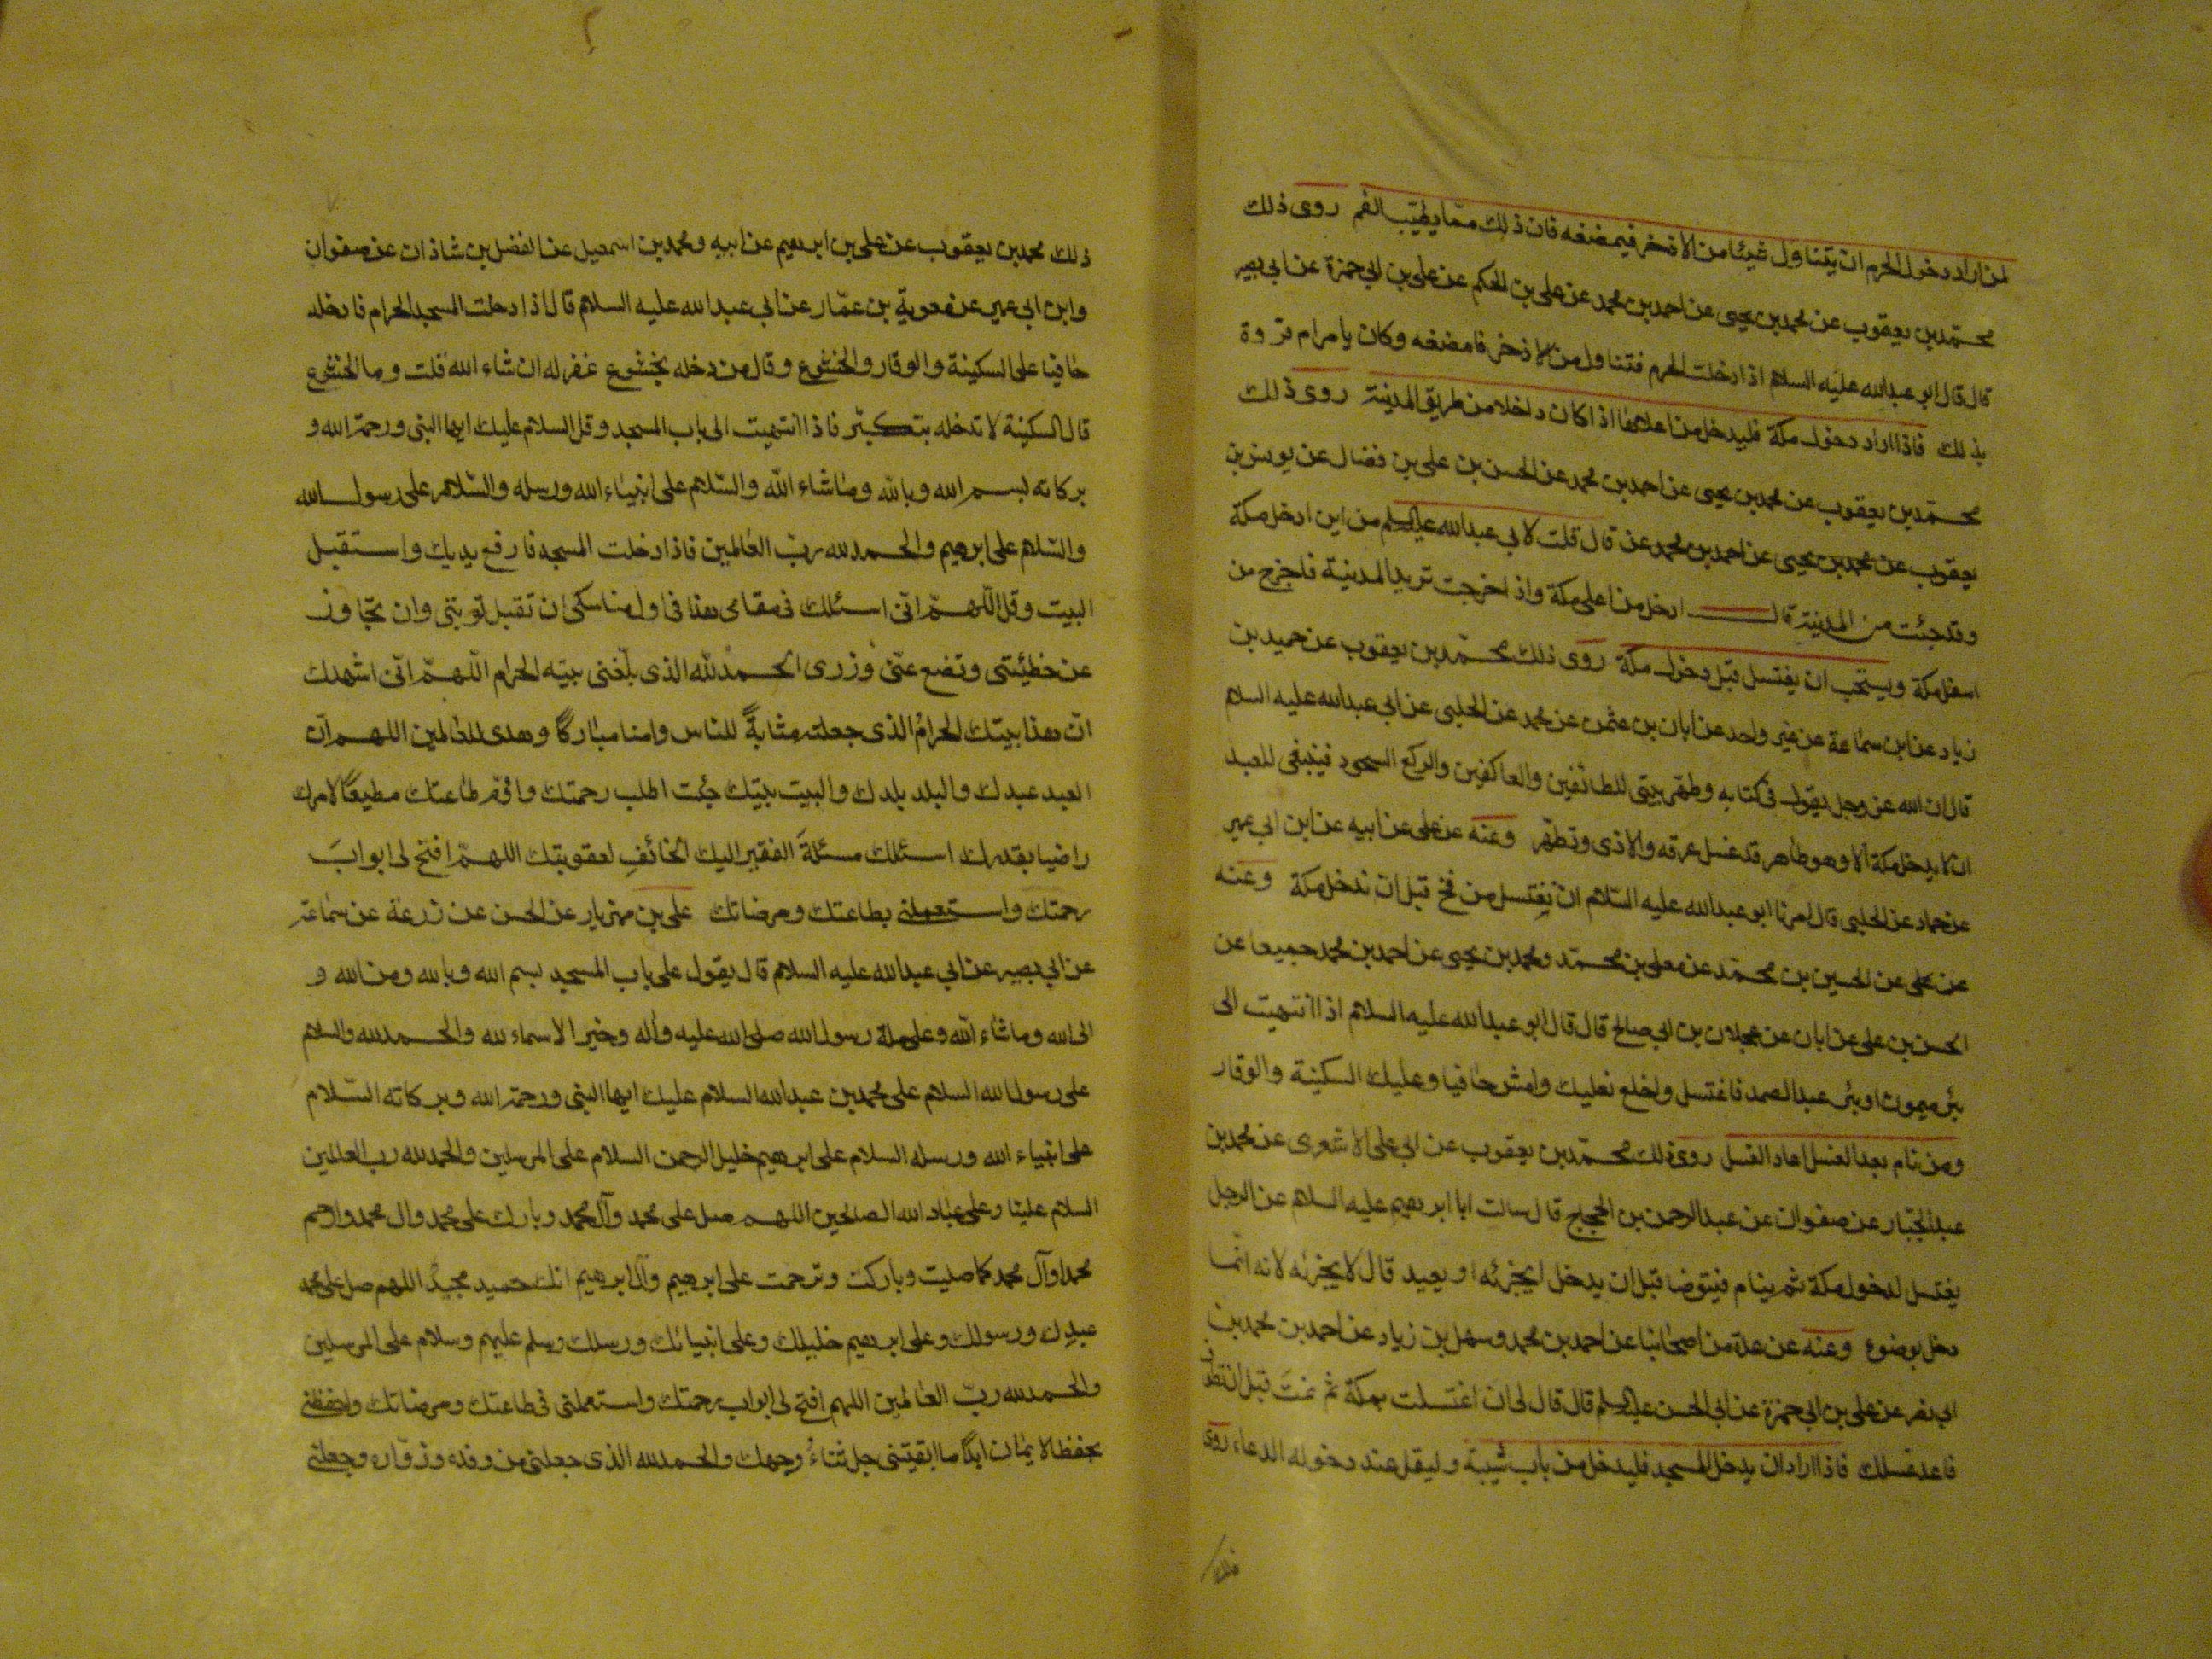 لمن اراد دخول الحرم ان يتناول شيئا من الاذخر فيمضغه فان ذلك مما يطيّب الفم روى ذلك
محمّد بن يعقوب عن محمد بن يحيى عن احمد بن محمد عن على بن الحكم عن على بن ابى حمزة عن ابى بصير
قال قال ابو عبد الله عليه السلام اذا دخلت الحرم فتناول من الاذخر فامضغه وكان يامر ام فروة
بذلك فاذا اراد دخول مكة فليدخل من اعلاها اذا كان داخلا من طريق المدينة روى ذلك
محمّد بن يعقوب عن محمد بن يحيى عن احمد بن محمد عن الحسن بن على بن فضال عن يونس بن
يعقوب عن محمد بن يحيى عن احمد بن محمد عن قال قلت لابى عبد الله عليه السلم من اين ادخل مكة
وقد جئت من المدينة قال ادخل من اعلى مكة واذا خرجت تريد المدينة فاخرج من
اسفل مكة ويستحب ان يغتسل قبل دخول مكة روى ذلك محمّد بن يعقوب عن حميد بن
زياد عن ابن سماعة عن غير واحد عن ابان بن عثمن عن محمد عن الحلبى عن ابى عبد الله عليه السلام
قال ان الله عز وجل يقول فى كتابه وطهر بيتى للطائفين والعاكفين والركع السجود فينبغى للعبد
ان لا يدخل مكة الا وهو طاهر قد غسل عرقه والاذى وتطهّر وعنه عن على عن ابيه عن ابن ابى عمير
عن حماد عن الحلبى قال امرنا ابو عبد الله عليه السّلام ان نغتسل من فخ قبل ان ندخل مكة وعنه
عن على عن الحسين بن محمّد عن معلى بن محمّد ومحمد بن يحيى عن احمد بن محمد جميعا عن
الحسن بن على عن ابان عن عجلان بن ابى صالح قال قال ابو عبد الله عليه السلام اذا انتهيت الى
بئر ميمون او بئر عبد الصمد فاغتسل واخلع نعليك وامش حافيا وعليك السكينة والوقار
ومن نام بعد الغسل اعاد الغسل روى ذلك محمّد بن يعقوب عن ابى على الاشعرى عن محمد بن
عبد الجبّار عن صفوان عن عبد الرحمن بن الحجاج قال سالت ابا ابرهيم عليه السلام عن الرجل
يغتسل لدخول مكة ثم ينام فيتوضا قبل ان يدخل ايجزئه او يعيد قال لا يجزئه لانه انّما
دخل بوضوء وعنه عن عدة من اصحابنا عن احمد بن محمد وسهل بن زياد عن احمد بن محمد بن
ابى نصر عن على بن ابى حمزة عن ابى الحسن عليه السلم قال قال لى ان اغتسلت بمكة ثم نمت قبل ان تطوف
فاعد غسلك فاذا اراد ان يدخل المسجد فليدخل من باب شيبة وليقل عند دخوله الدعاء روى
ذلك محمد بن يعقوب عن على بن ابرهيم عن ابيه ومحمد بن اسمعيل عن الفضل بن شاذان عن صفوان
وابن ابى عمير عن معوية بن عمّار عن ابى عبد الله عليه السلام قال اذا دخلت المسجد الحرام فادخله
حافيا على السكينة والوقار والخشوع وقال من دخله بخشوع غفر له ان شاء الله قلت وما الخشوع
قال السكينة لا تدخله بتكبّر فاذا انتهيت الى باب المسجد وقل السلام عليك ايها النبى ورحمة الله و
بركاته بسم الله وبالله وما شاء الله والسّلام على انبياء الله ورسله والسّلام على رسول الله
والسّلام على ابرهيم والحمد لله ربّ العالمين فاذا دخلت المسجد فارفع يديك واستقبل
البيت وقل اللّهمّ انّى اسئلك فى مقامى هذا فى اول مناسكى ان تقبل توبتى وان تجاوز
عن خطيئتى وتضع عنّى وزرى الحمد لله الذى بلّغنى بيته الحرام اللّهمّ انّى اشهدك
انّ هذا بيتك الحرام الذى جعلته مثابةً للناس وامنا مباركًا وهدى للعالمين اللهم انّ
العبد عبدك والبلد بلدك والبيت بيتك جئت اطلب رحمتك واؤم طاعتك مطيعًا لامرك
راضيا بقدرك اسئلك مسئلةَ الفقير اليك الخائفِ لعقوبتك اللهمّ افتح لى ابوابَ
رحمتك واستعملنى بطاعتك ومرضاتك على بن مهزيار عن الحسن عن زرعة عن سماعة
عن ابى بصير عن ابى عبد الله عليه السلام قال يقول على باب المسجد بسم الله وبالله ومن الله و
الى الله وما شاء الله وعلى ملة رسول الله صلى الله عليه وآله وخير الاسماء لله والحمد لله والسلام
على رسول الله السلام على محمد بن عبد الله السلام عليك ايها النبى ورحمة الله وبركاته السّلام
على انبياء الله ورسله السلام على ابرهيم خليل الرحمن السلام على المرسلين والحمد لله رب العالمين
السلام علينا وعلى عباد الله الصالحين اللهم صل على محمد وآل محمد وبارك على محمد وال محمد وارحم
محمدا وآل محمد كما صليت وباركت وترحمت على ابرهيم وآل ابرهيم انك حميد مجيدٌ اللهم صل على محمد
عبدك ورسولك وعلى ابرهيم خليلك وعلى انبيائك ورسلك وسلم عليهم وسلام على المرسلين
والحمد لله ربّ العالمين اللهم افتح لى ابواب رحمتك واستعملنى فى طاعتك ومرضاتك واحفظنى
بحفظ الايمان ابدًا ما ابقيتنى جل ثناءُ وجهك والحمد لله الذى جعلنى من وفده وزوّاره وجعلنى